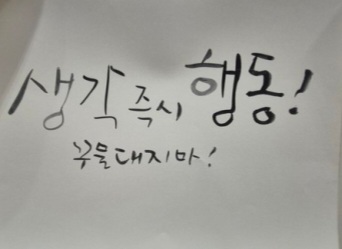 생각 즉시 행동!
꾸물대지마!